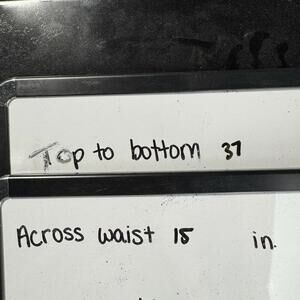 Top to bottom 37
Across waist 15 in.